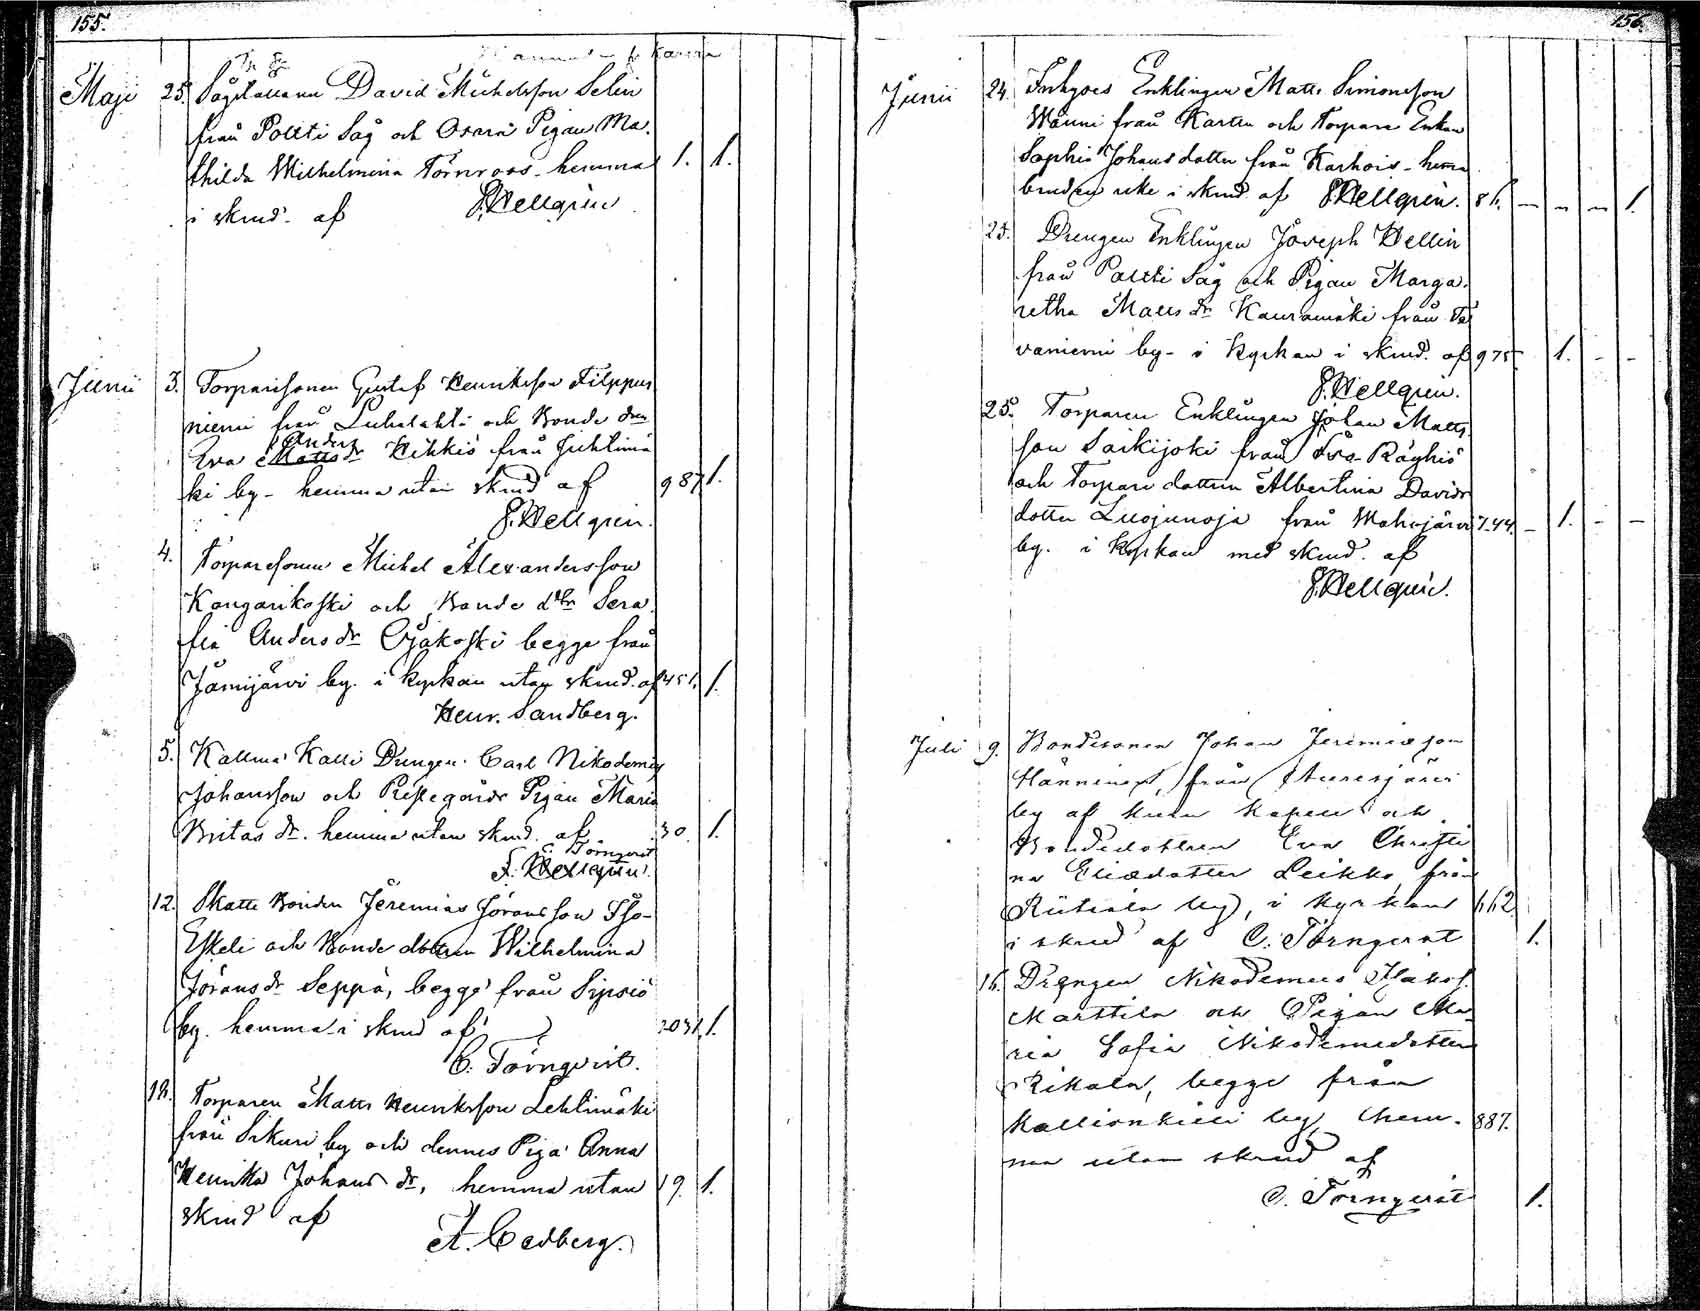 155.
Maji 25. Sågställaren David Michelsson Selin
från Pottti Såg och Osara Pigan Ma-
thilda Wilhelmina Törnroos - hemma 1. 1.
i skrud. af F. Hellgrén
Junii 3. Torparesonen Gustaf Henriksson Filppus
niemi från Luhalahti och Bonde drn
Anders
Eva Matts dr Heikkis från Juhtimä
ki by - hemma utan skrud af 987 1.
F. Hellgrén.
4. Torparesonen Michel Alexandersson
Kangarikoski och Bonde dttr Sera
fia Anders dr Ojakoski begge från
Jämijärvi by. i kyrkan utan skrud. af 451. 1.
Henr. Sandberg.
5. Kallma Kalli Drengen Carl Nikodemus
Johansson och Prestegårds Pigan Maria
Britas dr. hemma utan skrud. af 30. 1.
C. Törnqvist
F. Hellgrén.
12. Skatte Bonden Jeremias Jöransson Iso-
Eskeli och Bonde dottren Wilhelmina
Jörans dr Seppä, begge från Sipsiö
by. hemma i skrud af 1.
C. Törnqvist.
18. Torparen Matts Henriksson Lehtimäki
från Sikuri by och dennes Piga Anna
Henrika Johans dr, hemma utan 19. 1.
skrud af
A. Cedberg.
156.
Junii 24. Inhyses Enklingen Matts Simonsson
Wänni från Karttu och Torpare Enkan
Sophia Johans dotter från Karhois - hemma
bruden icke i skrud af F. Hellgrén. 86. - - - 1.
25. Drengen Enklingen Joseph Hellin
från Pottti Såg och Pigan Marga-
retha Matts dr Kauramäki från Ta
vaniemi by - i kyrkan i skrud. af 975. 1. - -
F. Hellgrén.
25. Torparen Enklingen Johan Matts
son Särkijoki från Iso-Röyhiö
och Torpare dottren Albertina Davids
dotter Luojunoja från Wahojärvi 744. - 1. - -
by. i kyrkan med skrud. af
F. Hellgrén.
Juli 9. Bondesonen Johan Jeremiæson
Hänninen, från
by af kapell och
Bondedottren Eva Christi
na Eliædotter Leikko från
Riitiala by, i kyrkan 662.
i skrud af C. Törnqvist 1.
16. Drengen Nikodemus Isaks s.
Marttila och Pigan Ma-
ria Sofia Nikodemidotter
Rikala, begge från
Kallionkieli by, hem- 887.
ma utan skrud af
C. Törnqvist 1.